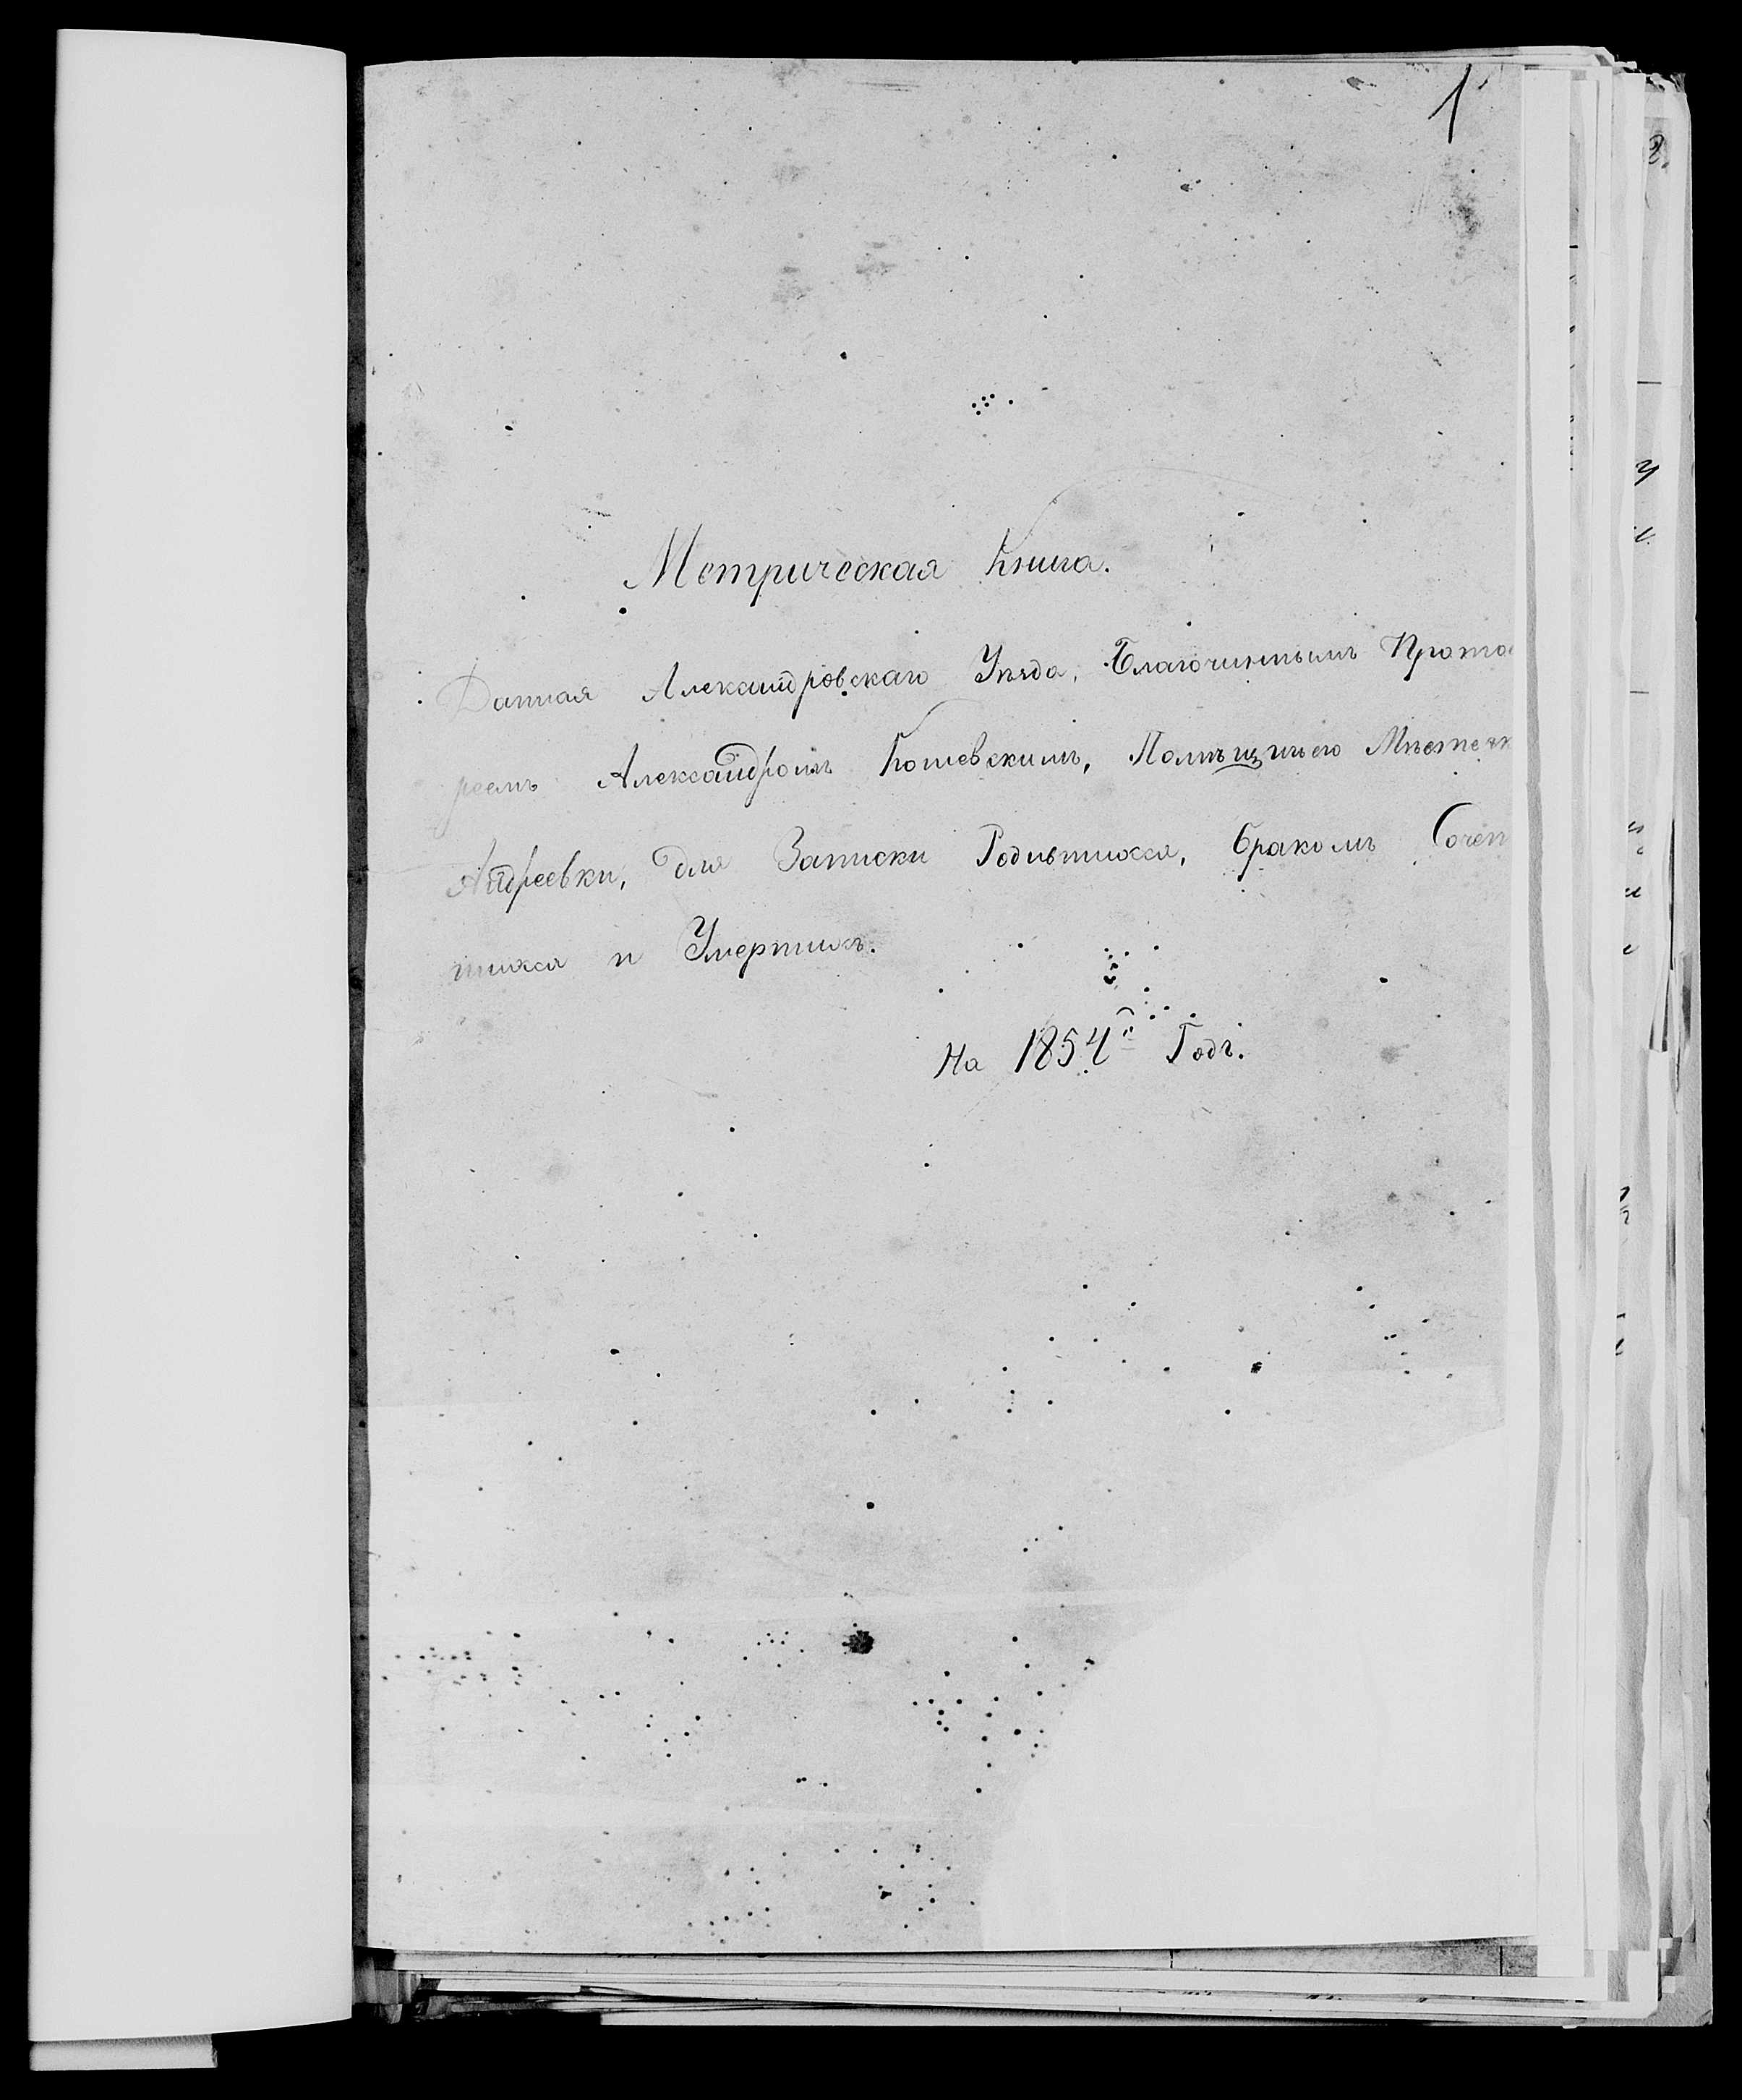 1
Метрическая Книга.
Данная Александровскаго Уѣзда, Благочиннымъ Протоі
реемъ Александромъ Кошевскимъ, Помѣщичьего Мѣстечк
Андреевки, для Записки Родившихся, бракомъ Сочетав
шихся и Умершихъ.
На 1854й Годъ.
2.